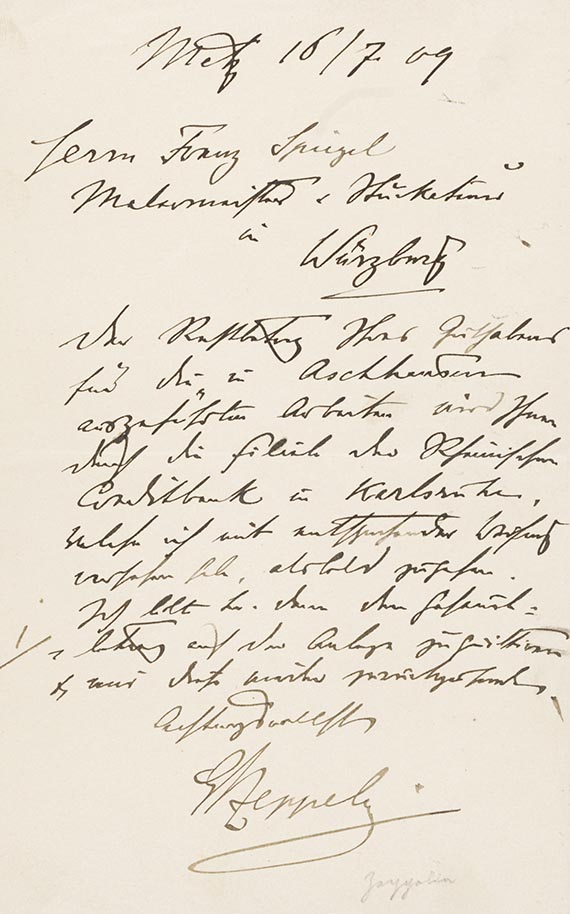 Metz 16/7 09
Herrn Franz Spiegel
Malermeister & Stuckateur
in
Würzburg
Der Restbetrag Ihres Guthabens
für die in Aschhausen
ausgeführten Arbeiten wird Ihnen
durch die Filiale der Rheinischen
Creditbank in Karlsruhe,
welche ich mit entsprechender Weisung
versehen habe, alsbald zugehen.
Ich bitte den Gesamt=
betrag auf der Anlage zu quittieren
& mir diese wieder zurückzusenden.
Achtungsvollst
Zeppelin
Zeppelin